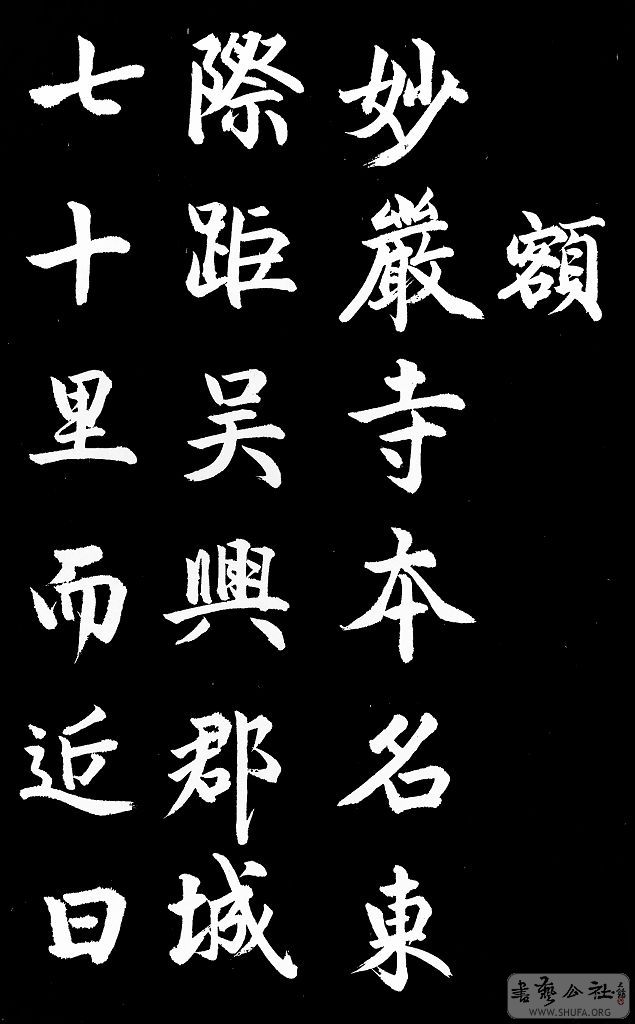 額
妙嚴寺本名東
際距吴興郡城
七十里而近曰
書藝公社
WWW.SHUFA.ORG